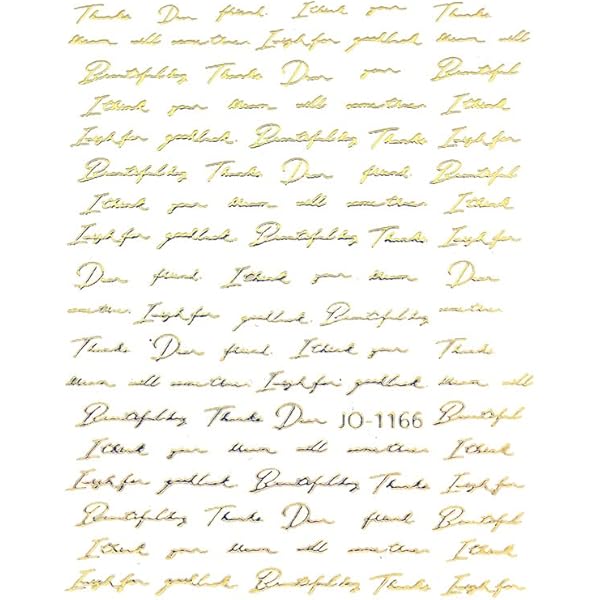 Thanks Dear friend. I think your Thanks
dream will come true. I sigh for good luck dream will
Beautiful day Thanks Dear your Beautiful
I think your dream will come true. I think
I sigh for good luck. Beautiful day Thanks I sigh for
Beautiful day Thanks Dear friend. Beautiful
I think your dream will come true. I think
I sigh for good luck. Beautiful day Thanks I sigh for
Dear friend. I think your dream Dear
come true. I sigh for good luck. Beautiful day come true.
Thanks Dear friend. I think your Thanks
dream will come true. I sigh for good luck. dream will
Beautiful day Thanks Dear JO-1166 Beautiful
I think your dream will come true. I think
I sigh for good luck Beautiful day Thanks I sigh for
Beautiful day Thanks Dear friend Beautiful
I think your dream will come true. I think
I sigh for good luck. Beautiful day Thanks I sigh for